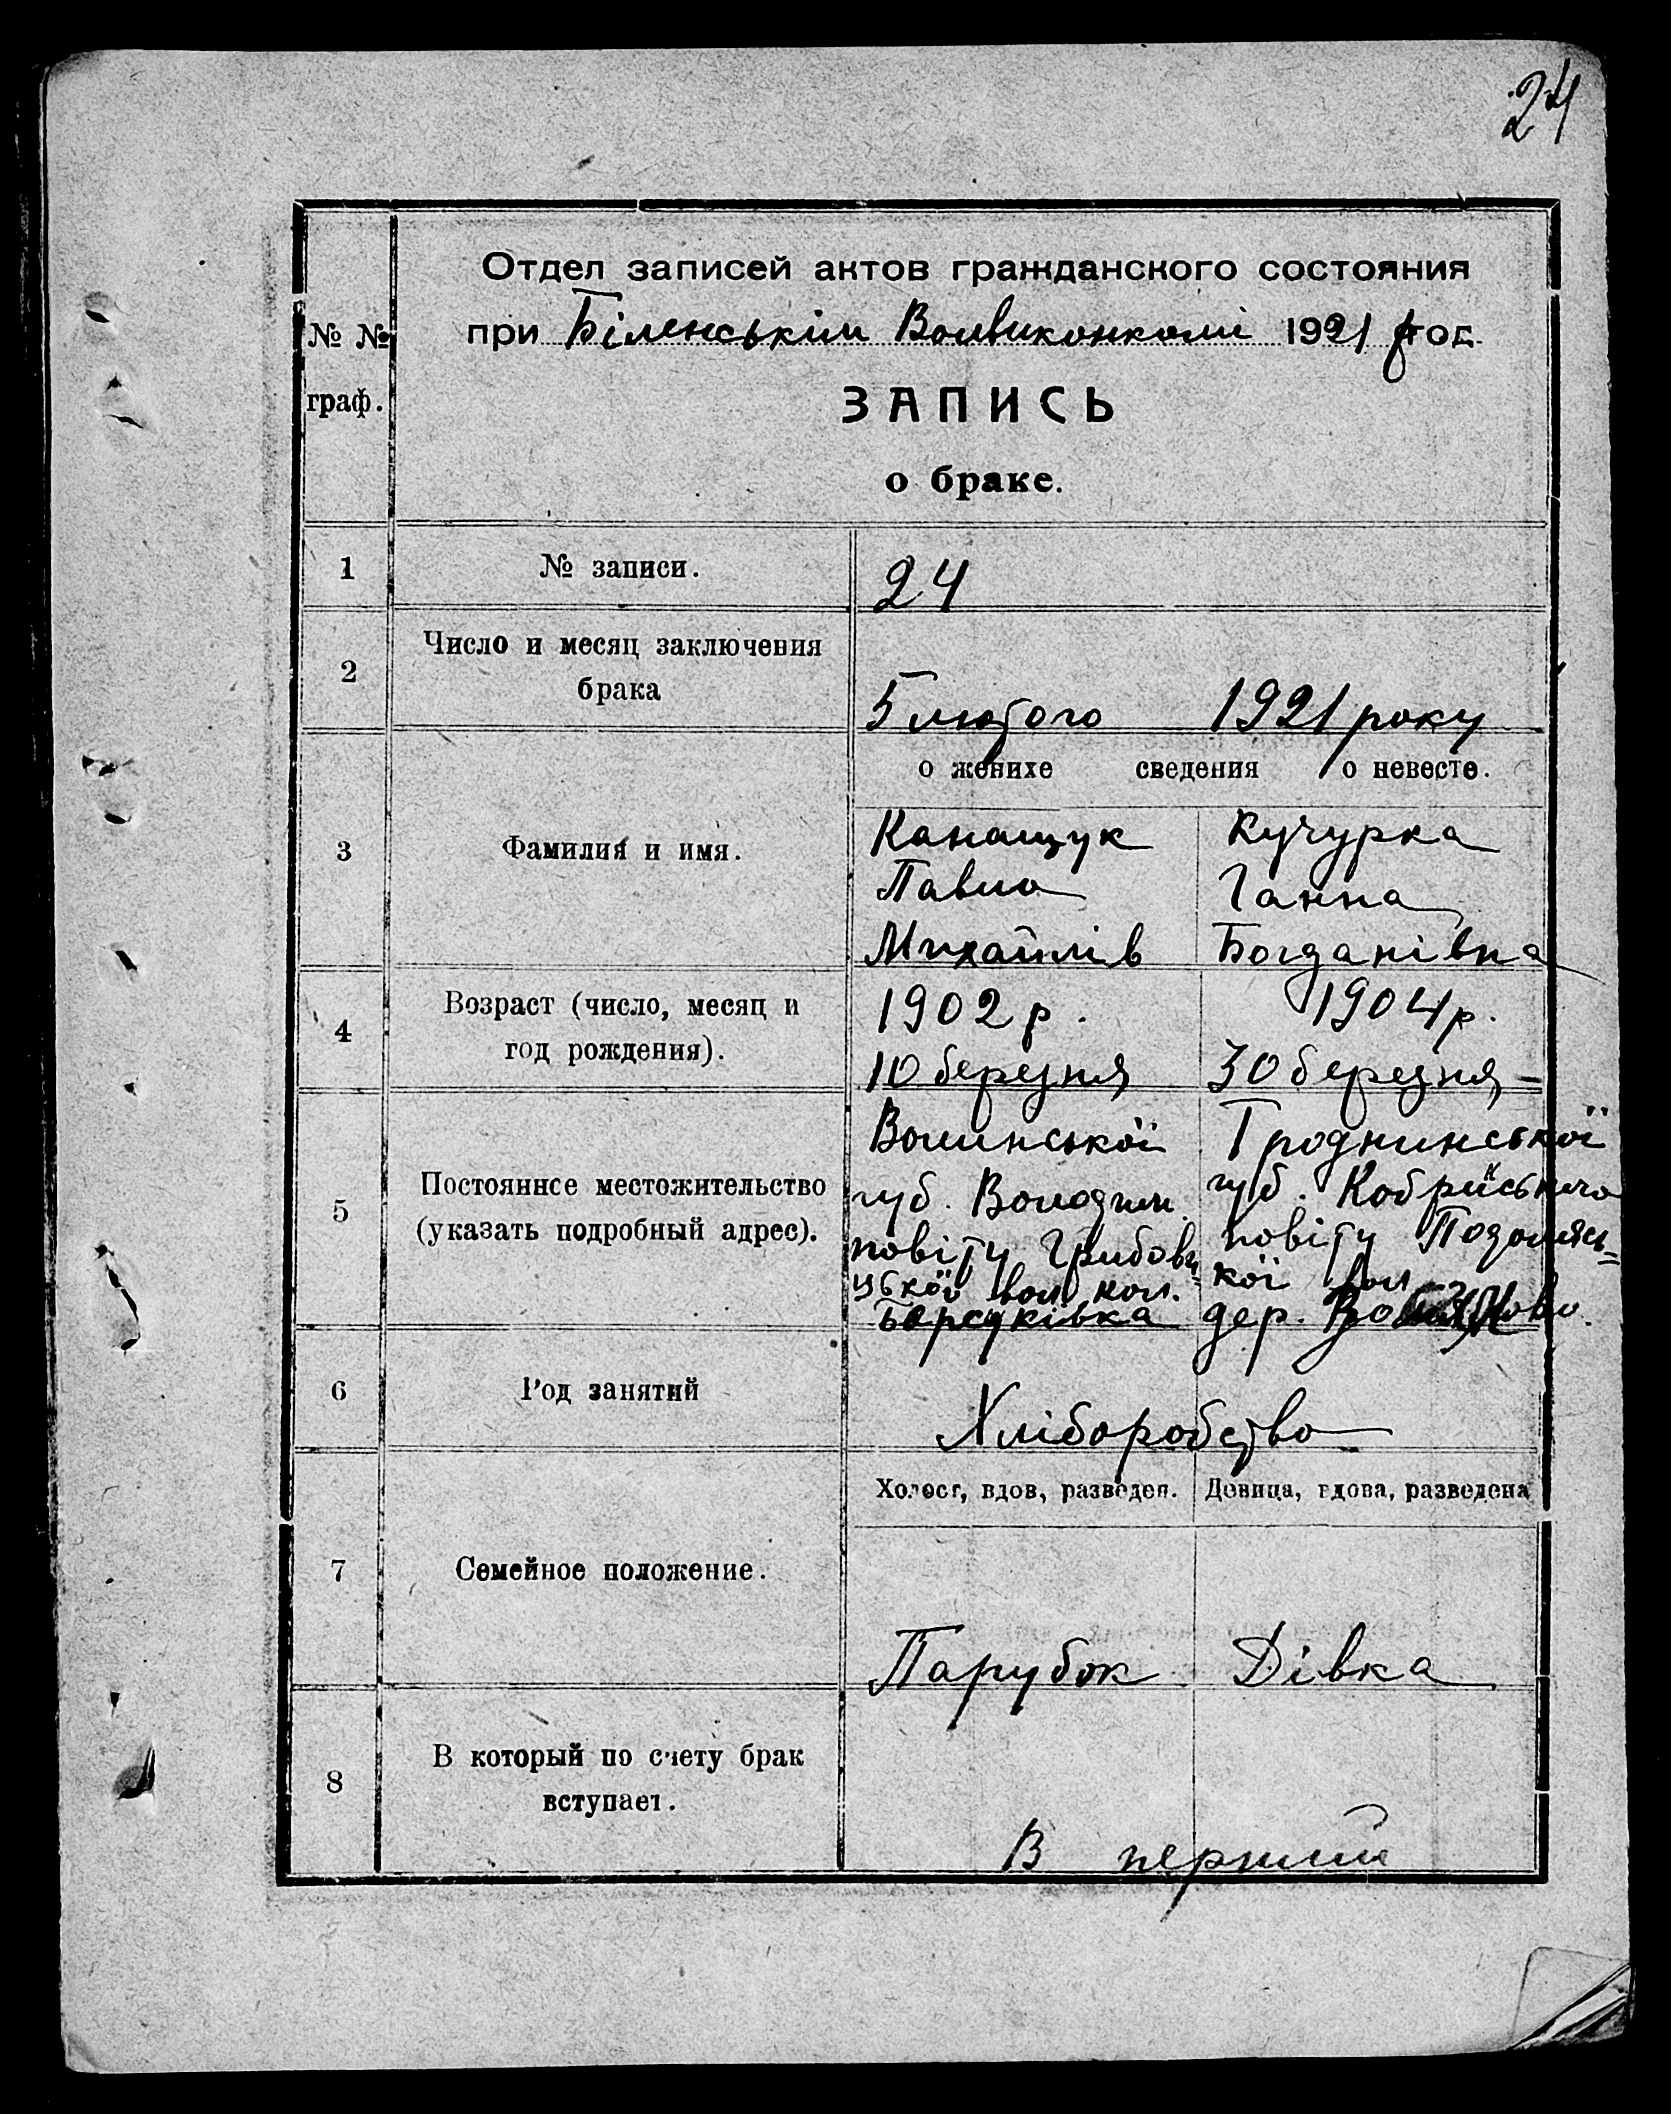 24
Отдел записей актов гражданского состояния
№ №
граф.
при Біленськім Волвиконкомі 1921 год.
ЗАПИСЬ
о браке.
1
№ записи.
24
2
Число и месяц заключения
брака
5 лютого 1921 року
о женихе сведения о невесте.
3
Фамилия и имя.
Канащук
Павло
Михайлів
Кучурка
Ганна
Богданівна
4
Возраст (число, месяц и
год рождения).
1902 р.
10 березня
1904 р.
30 березня
5
Постоянное местожительство
(указать подробный адрес).
Волинської
губ. Володим.
повіту Грибови
цької вол. кол.
Борсуківка
Гроднинської
губ. Кобрийського
повіту
кої вол
дер.
6
Род занятий
Хліборобство
7
Семейное положение.
Холост, вдов, разведен.
Девица, вдова, разведена
Парубок
Дівка
8
В который по счету брак
вступает.
В перший